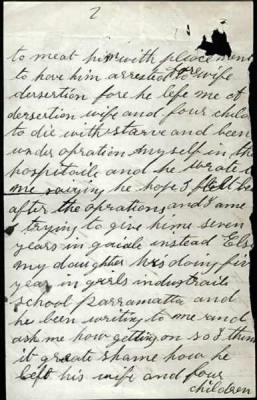 2
to meat him with pleace man
to have him arrested fore wife
desertion fore he left me of
desertion wife and four child
to die with starve and been
under opration myself in the
hospitaile and he wrote to
me saying he hope I
after the oprations and I ame
trying to give hime seven
years in goiale instead
my daughter his doing five
year in girls industraile
school Parramatta and
he been writing to me and
ask me how getting on so I think
it greate shame how he
left his wife and four
children